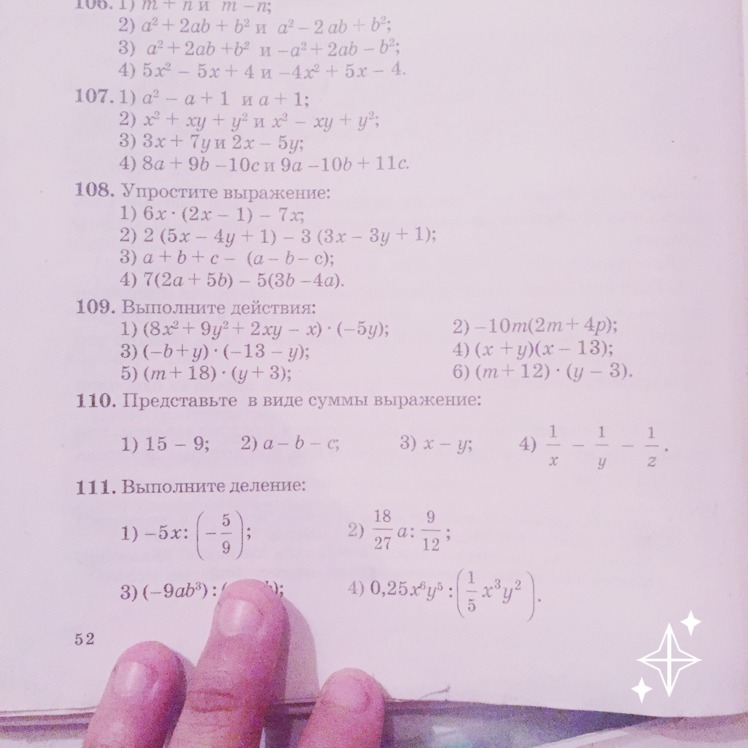 106. 1) m + n и m – n;
2) a² + 2ab + b² и a² – 2 ab + b²;
3) a² + 2ab +b² и –a² + 2ab – b²;
4) 5x² – 5x + 4 и –4x² + 5x – 4.
107. 1) a² – a + 1 и a + 1;
2) x² + xy + y² и x² – xy + y²;
3) 3x + 7y и 2x – 5y;
4) 8a + 9b –10c и 9a –10b + 11c.
108. Упростите выражение:
1) 6x · (2x – 1) – 7x;
2) 2 (5x – 4y + 1) – 3 (3x – 3y + 1);
3) a + b + c – (a – b – c);
4) 7(2a + 5b) – 5(3b –4a).
109. Выполните действия:
1) (8x² + 9y² + 2xy – x) · (–5y); 2) –10m(2m + 4p);
3) (–b + y) · (–13 – y); 4) (x + y)(x – 13);
5) (m + 18) · (y + 3); 6) (m + 12) · (y – 3).
110. Представьте в виде суммы выражение:
1) 15 – 9; 2) a – b – c; 3) x – y; 4) 1/x – 1/y – 1/z.
111. Выполните деление:
1) –5x: (–5/9); 2) 18/27 a: 9/12;
3) (–9ab³) : ( ); 4) 0,25x⁶y⁵ : (1/5 x³y²).
52